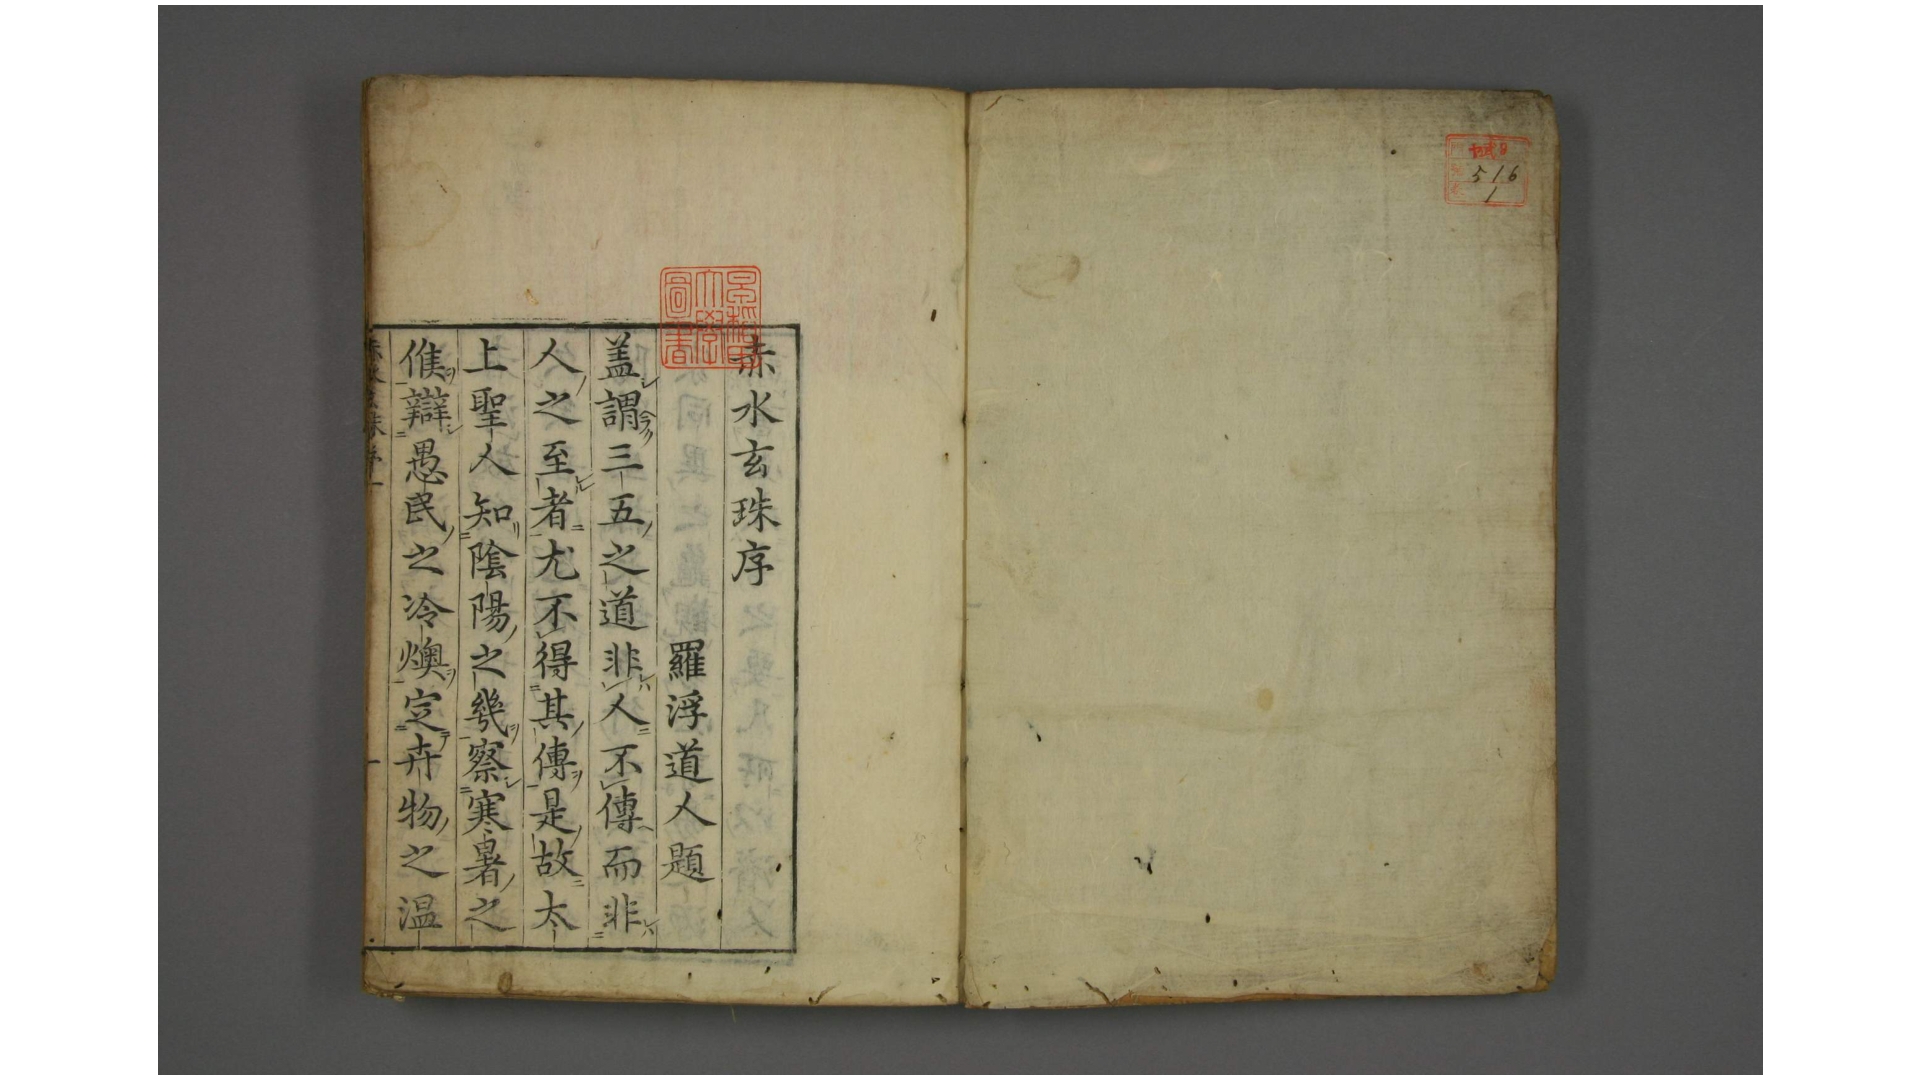 516
1
早稲田
大學
圖書
赤水玄珠序
羅浮道人題
盖謂三五之道非人不傳而非
人之至者尤不得其傳是故太
上聖人知陰陽之幾察寒暑之
候辯愚民之冷燠定卉物之温